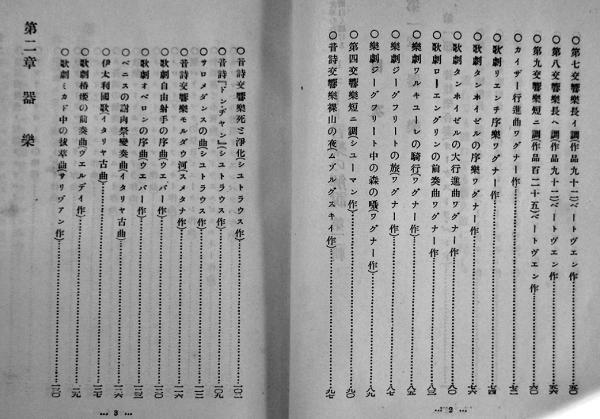 ○第七交響樂長イ調(作品九十二)ベートヴェン作
○第八交響樂長ヘ調(作品九十三)ベートヴェン作
○第九交響樂短ニ調(作品百二十五)ベートヴェン作
○カイザー行進曲(ワグナー作)
○歌劇リエンチ序樂(ワグナー作)
○歌劇タンホイゼルの序樂(ワグナー作)
○歌劇タンホイゼルの大行進曲(ワグナー作)
○歌劇ローエングリンの前奏曲(ワグナー作)
○樂劇ワルキューレの騎行(ワグナー作)
○樂劇ジーグフリートの旅(ワグナー作)
○樂劇ジーグフリート中の森の囁(ワグナー作)
○第四交響樂短ニ調(シューマン作)
○音詩交響樂裸山の夜(ムソルグスキイ作)
… 2 …
○音詩交響樂死と淨化(シュトラウス作)
○音詩『ドン・ヂャン』(シュトラウス作)
○サロメダンスの曲(シュトラウス作)
○音詩交響樂モルダウ河(スメタナ作)
○歌劇自由射手の序曲(ウエバー作)
○歌劇オベロンの序曲(ウエバー作)
○ベニスの謝肉祭變奏曲(イタリヤ古曲)
○伊太利國歌(イタリヤ古曲)
○歌劇椿姫の前奏曲(ウエルデイ作)
○歌劇ミカド中の拔萃曲(サリヴアン作)
第二章 器樂
… 3 …